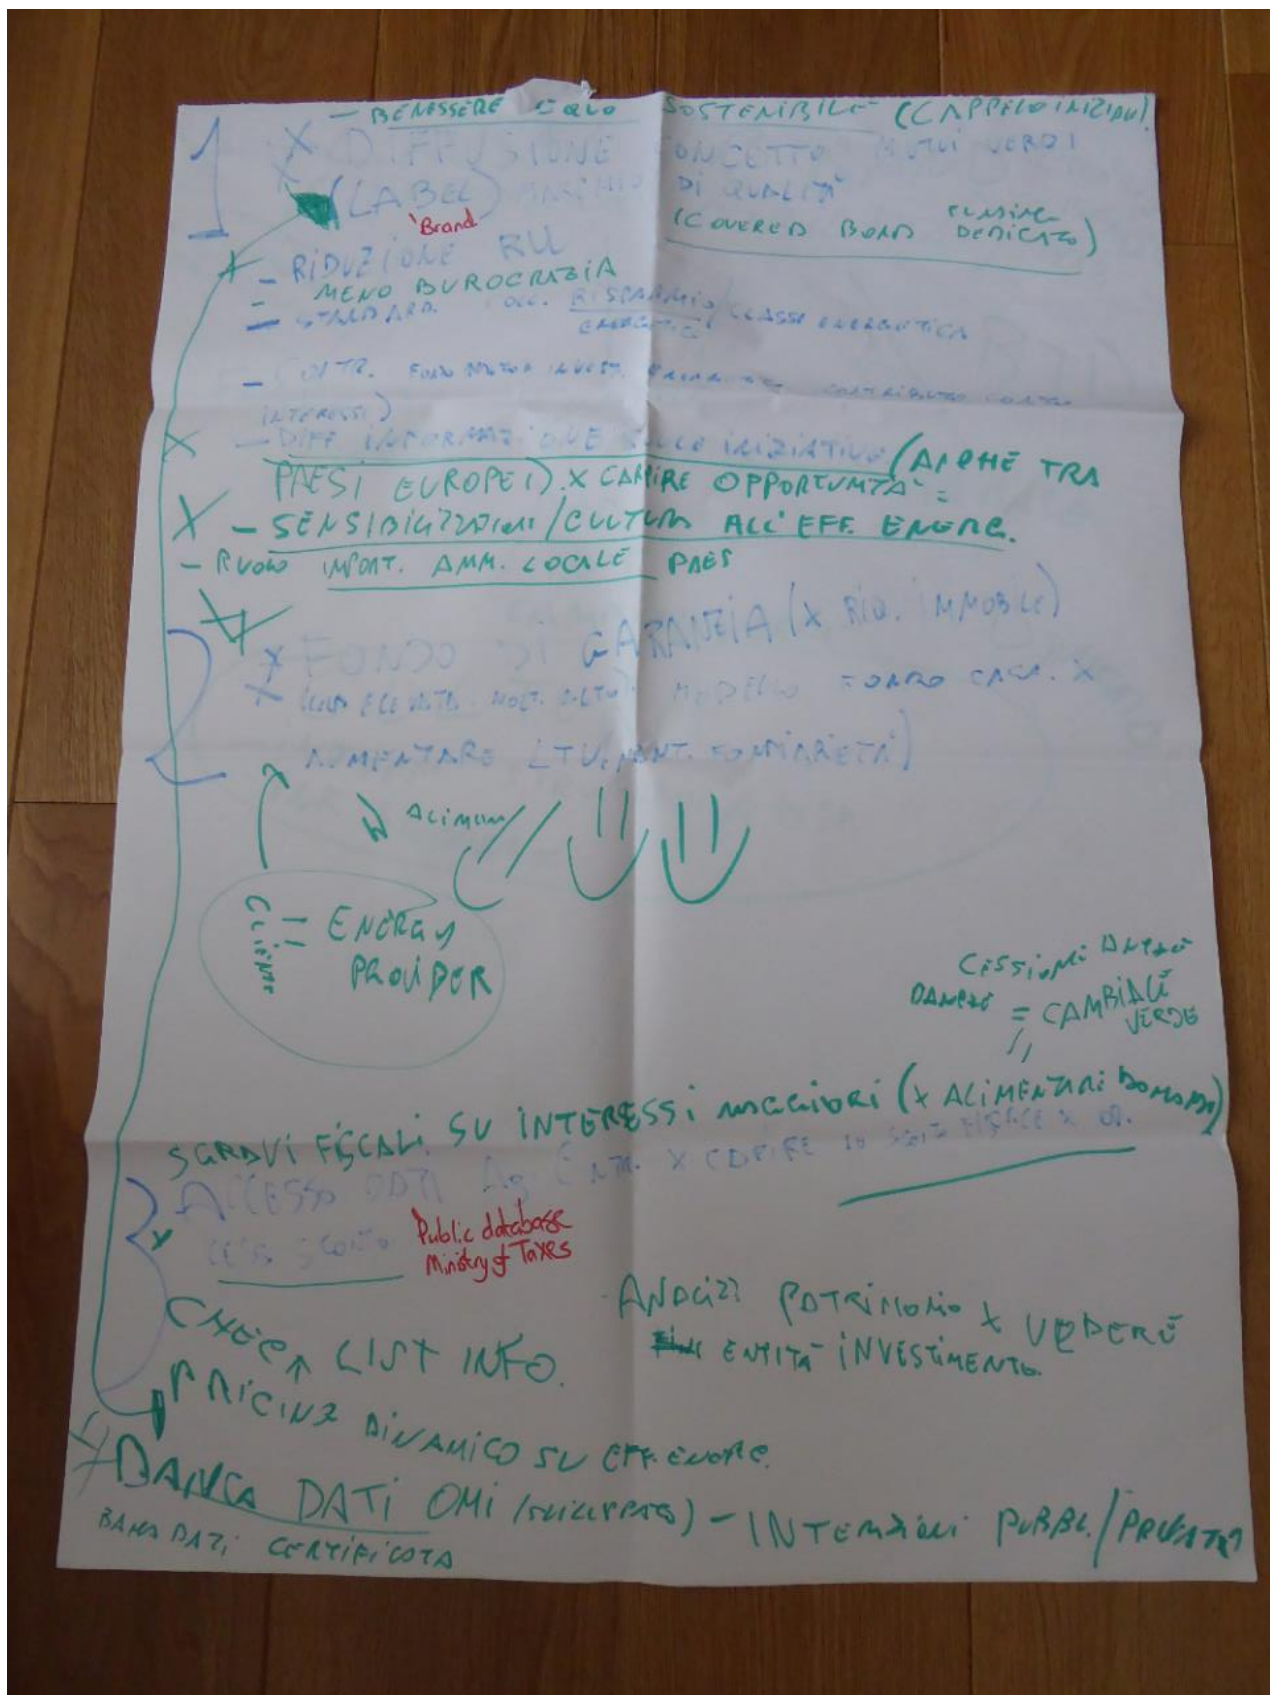 - BENESSERE EQUO SOSTENIBILE (CAPPELLO INIZIALE)
1 X DIFFUSIONE CONCETTO MUTUI VERDI
(LABEL) MARCHIO DI QUALITÀ
'Brand
(COVERED BOND FUNDING DEDICATO)
- RIDUZIONE
- MENO BUROCRAZIA
- STANDARD. RISPARMIO/CLASSE ENERGETICA
ENERGETICO
- CONTR. INVEST. CONTRIBUTO CONTO
INTERESSI)
X - DIFF INFORMAZIONE SULLE INIZIATIVE (ANCHE TRA
PAESI EUROPEI) X CAPIRE OPPORTUNITÀ =
X - SENSIBILIZZAZIONI/CULTURA ALL'EFF. ENERG.
- RUOLO IMPORT. AMM. LOCALE PAES
X FONDO DI GARANZIA (X RIQ. IMMOBILE)
X MODELLO FONDO CASA. X
AUMENTARE LTV, MANT. FONDIARIETÀ)
CLIENTE
ENERGY
PROVIDER
CESSIONE ANCHE
BANCHE = CAMBIALI
VERDE
SGRAVI FISCALI SU INTERESSI MAGGIORI (X ALIMENTARE DOMANDA)
ACCESSO DATI AG. ENTR. X CAPIRE
X CESS SCONTO
Public database
Ministry of Taxes
CHECK LIST INFO.
ANALIZZ PATRIMONIO X VEDERE
ENTITÀ INVESTIMENTO.
PRICING DINAMICO SU EFF. ENERG.
BANCA DATI OMI (SVILUPPATO) - INTERAZIONI PUBBL./PRIVATO
BANCA DATI CERTIFICATA